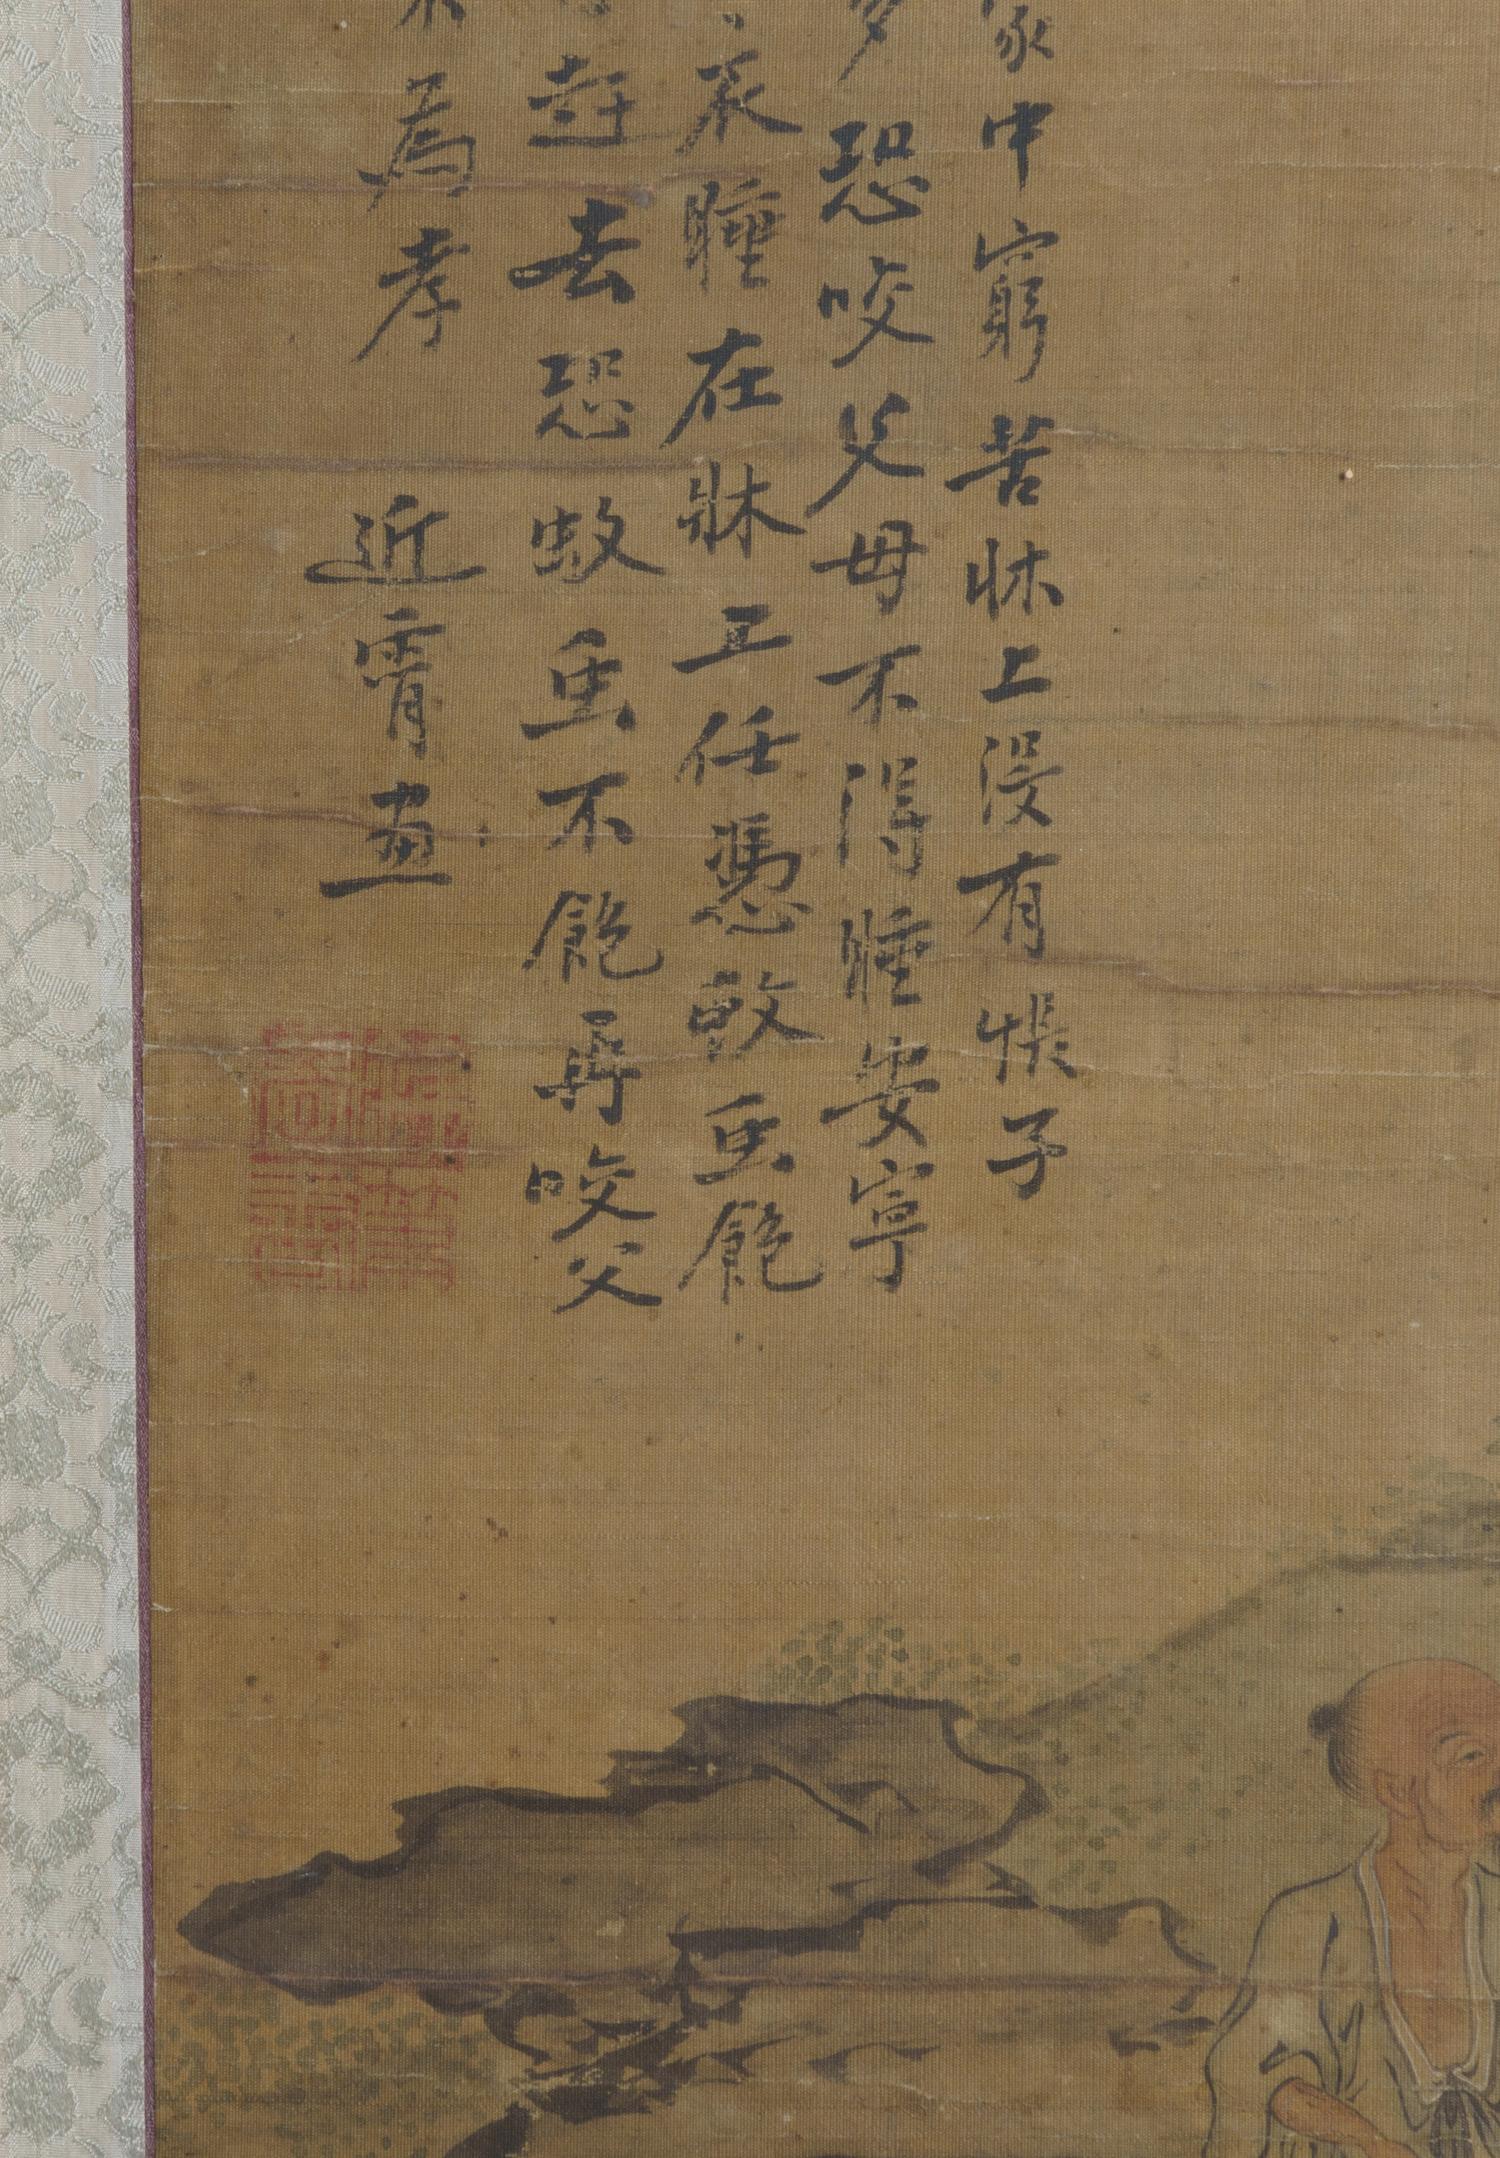 家中窮苦牀上没有帳子
多恐咬父母不得睡安寧
衣睡在牀上任憑蚊虫飽
赶去恐蚊虫不飽再咬父
為孝
近霄画